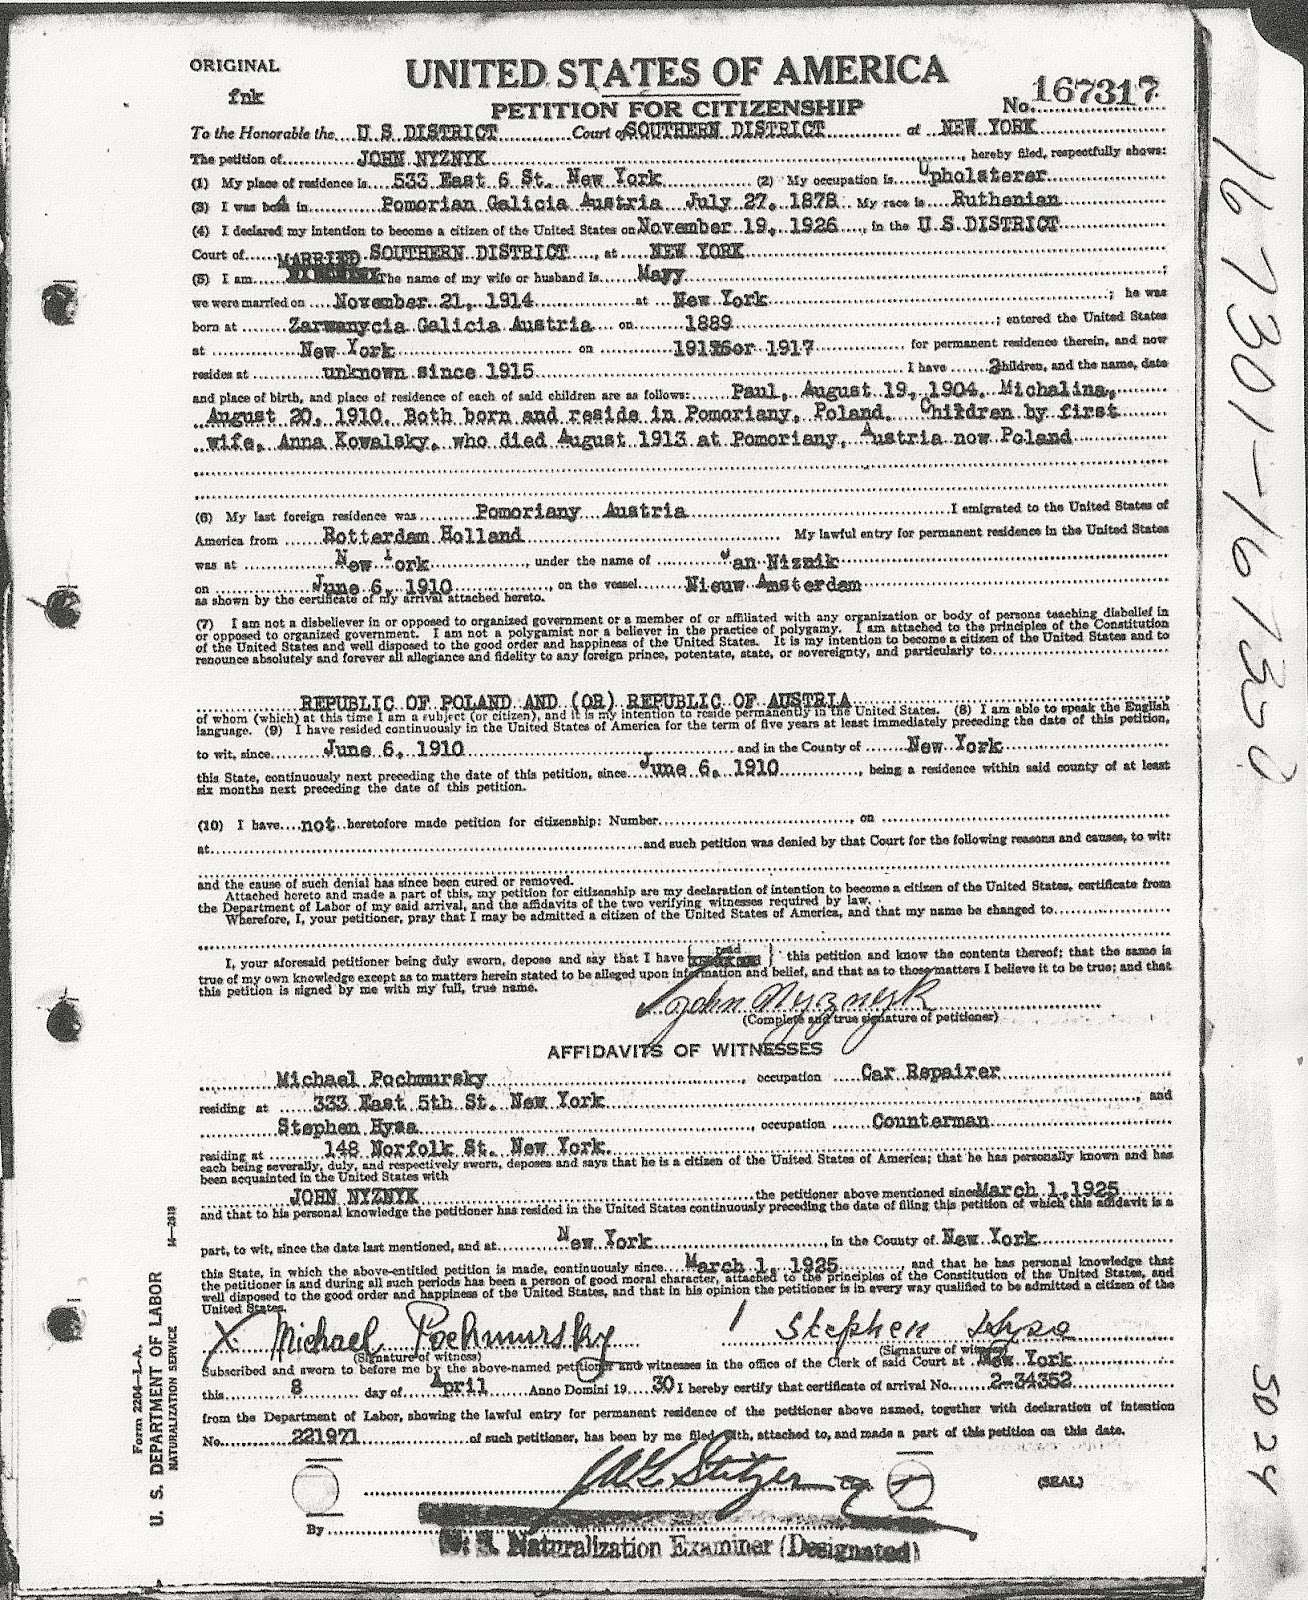 ORIGINAL
fnk
UNITED STATES OF AMERICA
PETITION FOR CITIZENSHIP
No. 167317
To the Honorable the U.S.DISTRICT Court of SOUTHERN DISTRICT at NEW YORK
The petition of JOHN NYZNYK, hereby filed, respectfully shows:
(1) My place of residence is 533 East 6 St. New York (2) My occupation is Upholsterer
(3) I was born in Pomorian Galicia Austria July 27, 1878 My race is Ruthenian
(4) I declared my intention to become a citizen of the United States on November 19, 1926, in the U.S.DISTRICT
Court of SOUTHERN DISTRICT, at NEW YORK
(5) I am MARRIED The name of my wife or husband is Mayy;
we were married on November 21, 1914 at New York; he was
born at Zarwanycia Galicia Austria on 1889; entered the United States
at New York on or 1917 for permanent residence therein, and now
resides at unknown since 1915 I have 2 children, and the name, date
and place of birth, and place of residence of each of said children are as follows: Paul, August 19, 1904, Michalina,
August 20, 1910. Both born and reside in Pomoriany, Poland. Children by first
wife, Anna Kowalsky, who died August 1913 at Pomoriany, Austria now Poland
(6) My last foreign residence was Pomoriany Austria I emigrated to the United States of
America from Rotterdam Holland My lawful entry for permanent residence in the United States
was at New York, under the name of Jan Niznik
on June 6, 1910, on the vessel Nieuw Amsterdam
as shown by the certificate of my arrival attached hereto.
(7) I am not a disbeliever in or opposed to organized government or a member of or affiliated with any organization or body of persons teaching disbelief in
or opposed to organized government. I am not a polygamist nor a believer in the practice of polygamy. I am attached to the principles of the Constitution
of the United States and well disposed to the good order and happiness of the United States. It is my intention to become a citizen of the United States and to
renounce absolutely and forever all allegiance and fidelity to any foreign prince, potentate, state, or sovereignty, and particularly to
REPUBLIC OF POLAND AND (OR) REPUBLIC OF AUSTRIA
of whom (which) at this time I am a subject (or citizen), and it is my intention to reside permanently in the United States. (8) I am able to speak the English
language. (9) I have resided continuously in the United States of America for the term of five years at least immediately preceding the date of this petition,
to wit, since June 6, 1910 and in the County of New York
this State, continuously next preceding the date of this petition, since June 6, 1910, being a residence within said county of at least
six months next preceding the date of this petition.
(10) I have not heretofore made petition for citizenship: Number, on
at and such petition was denied by that Court for the following reasons and causes, to wit:
and the cause of such denial has since been cured or removed.
Attached hereto and made a part of this, my petition for citizenship are my declaration of intention to become a citizen of the United States, certificate from
the Department of Labor of my said arrival, and the affidavits of the two verifying witnesses required by law.
Wherefore, I, your petitioner, pray that I may be admitted a citizen of the United States of America, and that my name be changed to
I, your aforesaid petitioner being duly sworn, depose and say that I have { read } this petition and know the contents thereof; that the same is
true of my own knowledge except as to matters herein stated to be alleged upon information and belief, and that as to those matters I believe it to be true; and that
this petition is signed by me with my full, true name.
John Nyznyk
(Complete and true signature of petitioner)
AFFIDAVITS OF WITNESSES
Michael Pochmursky, occupation Car Repairer
residing at 333 East 5th St. New York, and
Stephen Hysa, occupation Counterman
residing at 148 Norfolk St. New York.
each being severally, duly, and respectively sworn, deposes and says that he is a citizen of the United States of America; that he has personally known and has
been acquainted in the United States with
JOHN NYZNYK the petitioner above mentioned since March 1, 1925
and that to his personal knowledge the petitioner has resided in the United States continuously preceding the date of filing this petition of which this affidavit is a
part, to wit, since the date last mentioned, and at New York, in the County of New York
this State, in which the above-entitled petition is made, continuously since March 1, 1925, and that he has personal knowledge that
the petitioner is and during all such periods has been a person of good moral character, attached to the principles of the Constitution of the United States, and
well disposed to the good order and happiness of the United States, and that in his opinion the petitioner is in every way qualified to be admitted a citizen of the
United States.
X Michael Pochmursky Stephen Hysa
(Signature of witness) (Signature of witness)
Subscribed and sworn to before me by the above-named petitioner and witnesses in the office of the Clerk of said Court at New York
this 8 day of April Anno Domini 19 30 I hereby certify that certificate of arrival No. 2-34352
from the Department of Labor, showing the lawful entry for permanent residence of the petitioner above named, together with declaration of intention
No. 221971 of such petitioner, has been by me filed with, attached to, and made a part of this petition on this date.
(SEAL)
By
U. S. Naturalization Examiner (Designated)
Form 2204—L-A.
U. S. DEPARTMENT OF LABOR
NATURALIZATION SERVICE
14—2818
167301-167350
5024